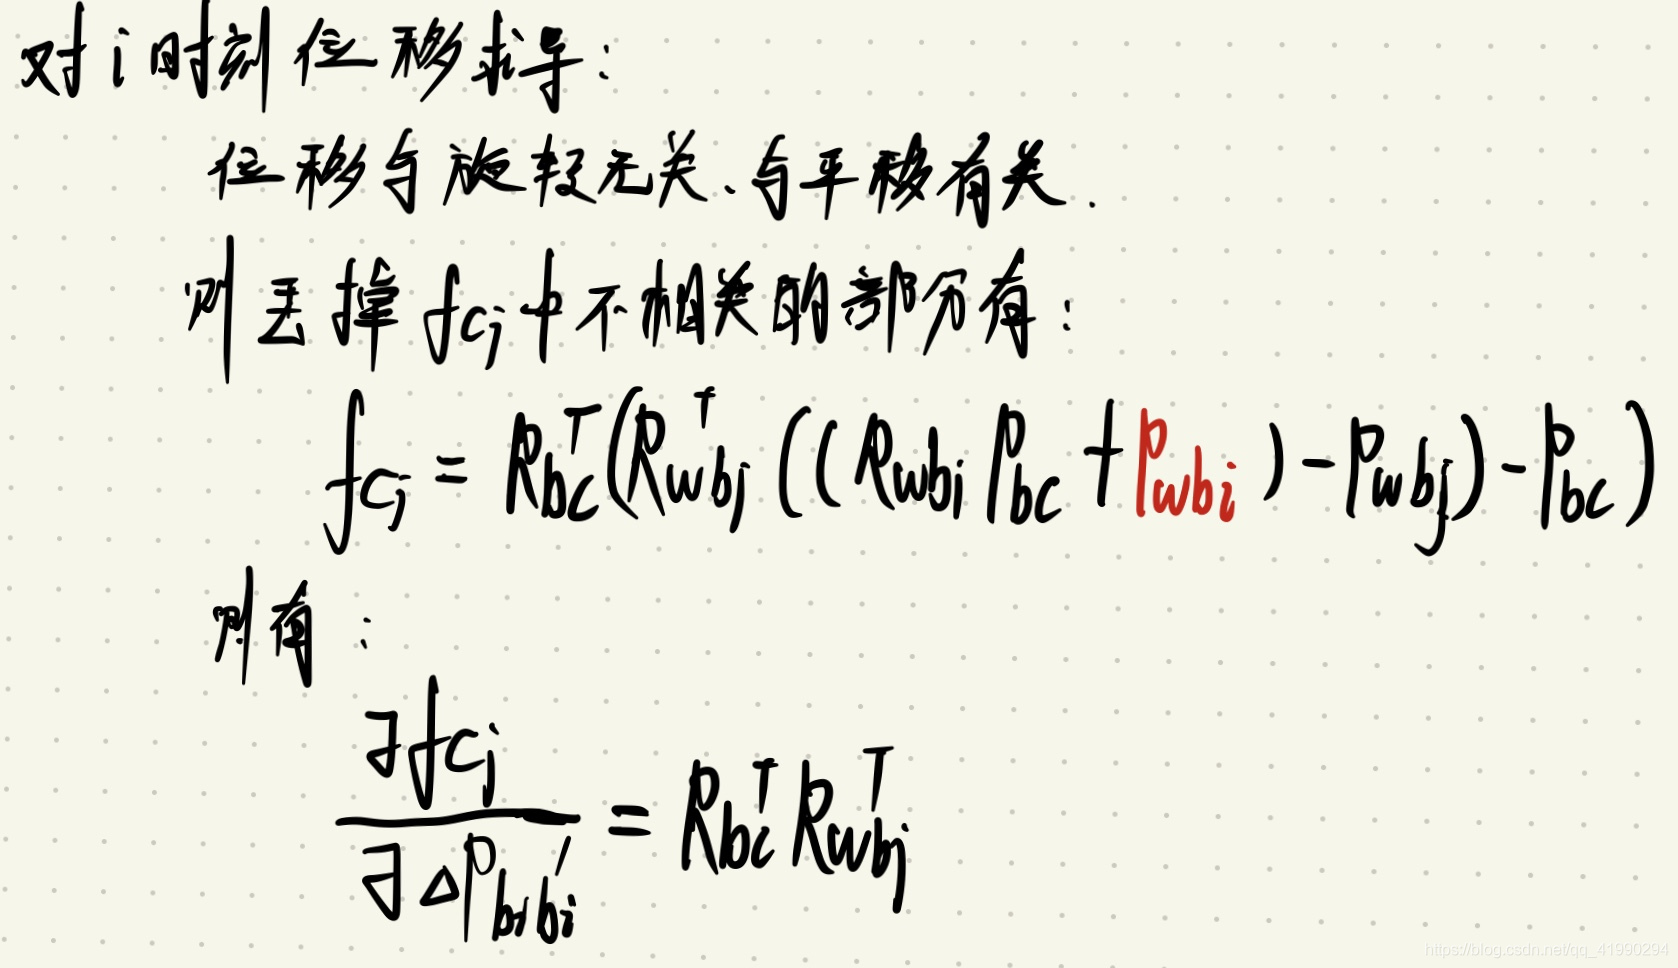 对i时刻位移求导:
位移与旋转无关、与平移有关.
则丢掉 f_{cj} 中不相关的部分有:
f_{cj} = R_{bc}^T (R_{wbj}^T ((R_{wbi} P_{bc} + P_{wbi}) - P_{wbj}) - P_{bc})
则有:
∂f_{cj} / ∂ΔP_{bib'i} = R_{bc}^T R_{wbj}^T
https://blog.csdn.net/qq_41990294